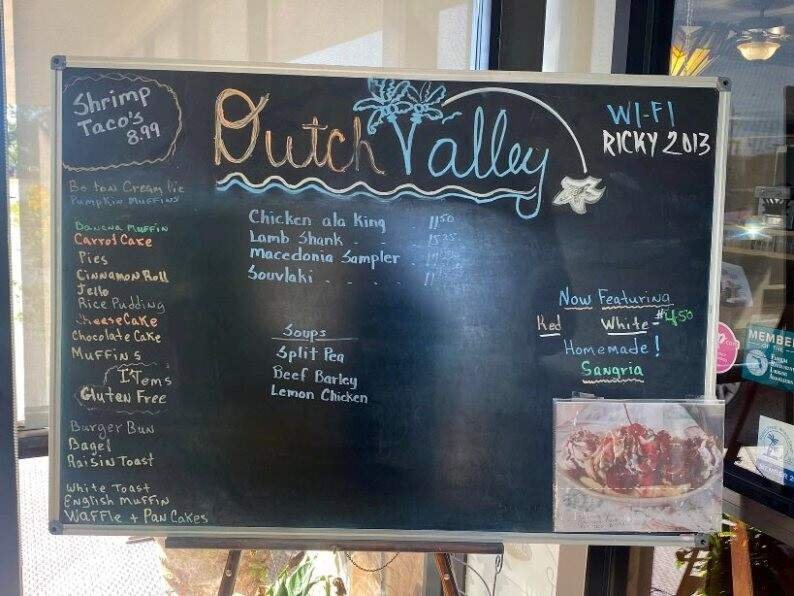 Shrimp
Taco's
8.99
Dutch Valley
WI-FI
RICKY 2013
Boston Cream Pie
Pumpkin Muffins
Banana Muffin
Carrot Cake
Pies
Cinnamon Roll
Jello
Rice Pudding
CheeseCake
Chocolate Cake
Muffins
ITems
Gluten Free
Burger Bun
Bagel
Raisin Toast
White Toast
English Muffin
Waffle + Pan Cakes
Chicken ala King 11.50
Lamb Shank
Macedonia Sampler
Souvlaki
Soups
Split Pea
Beef Barley
Lemon Chicken
Now Featuring
Red White = $4.50
Homemade!
Sangria
MEMBER
OF THE